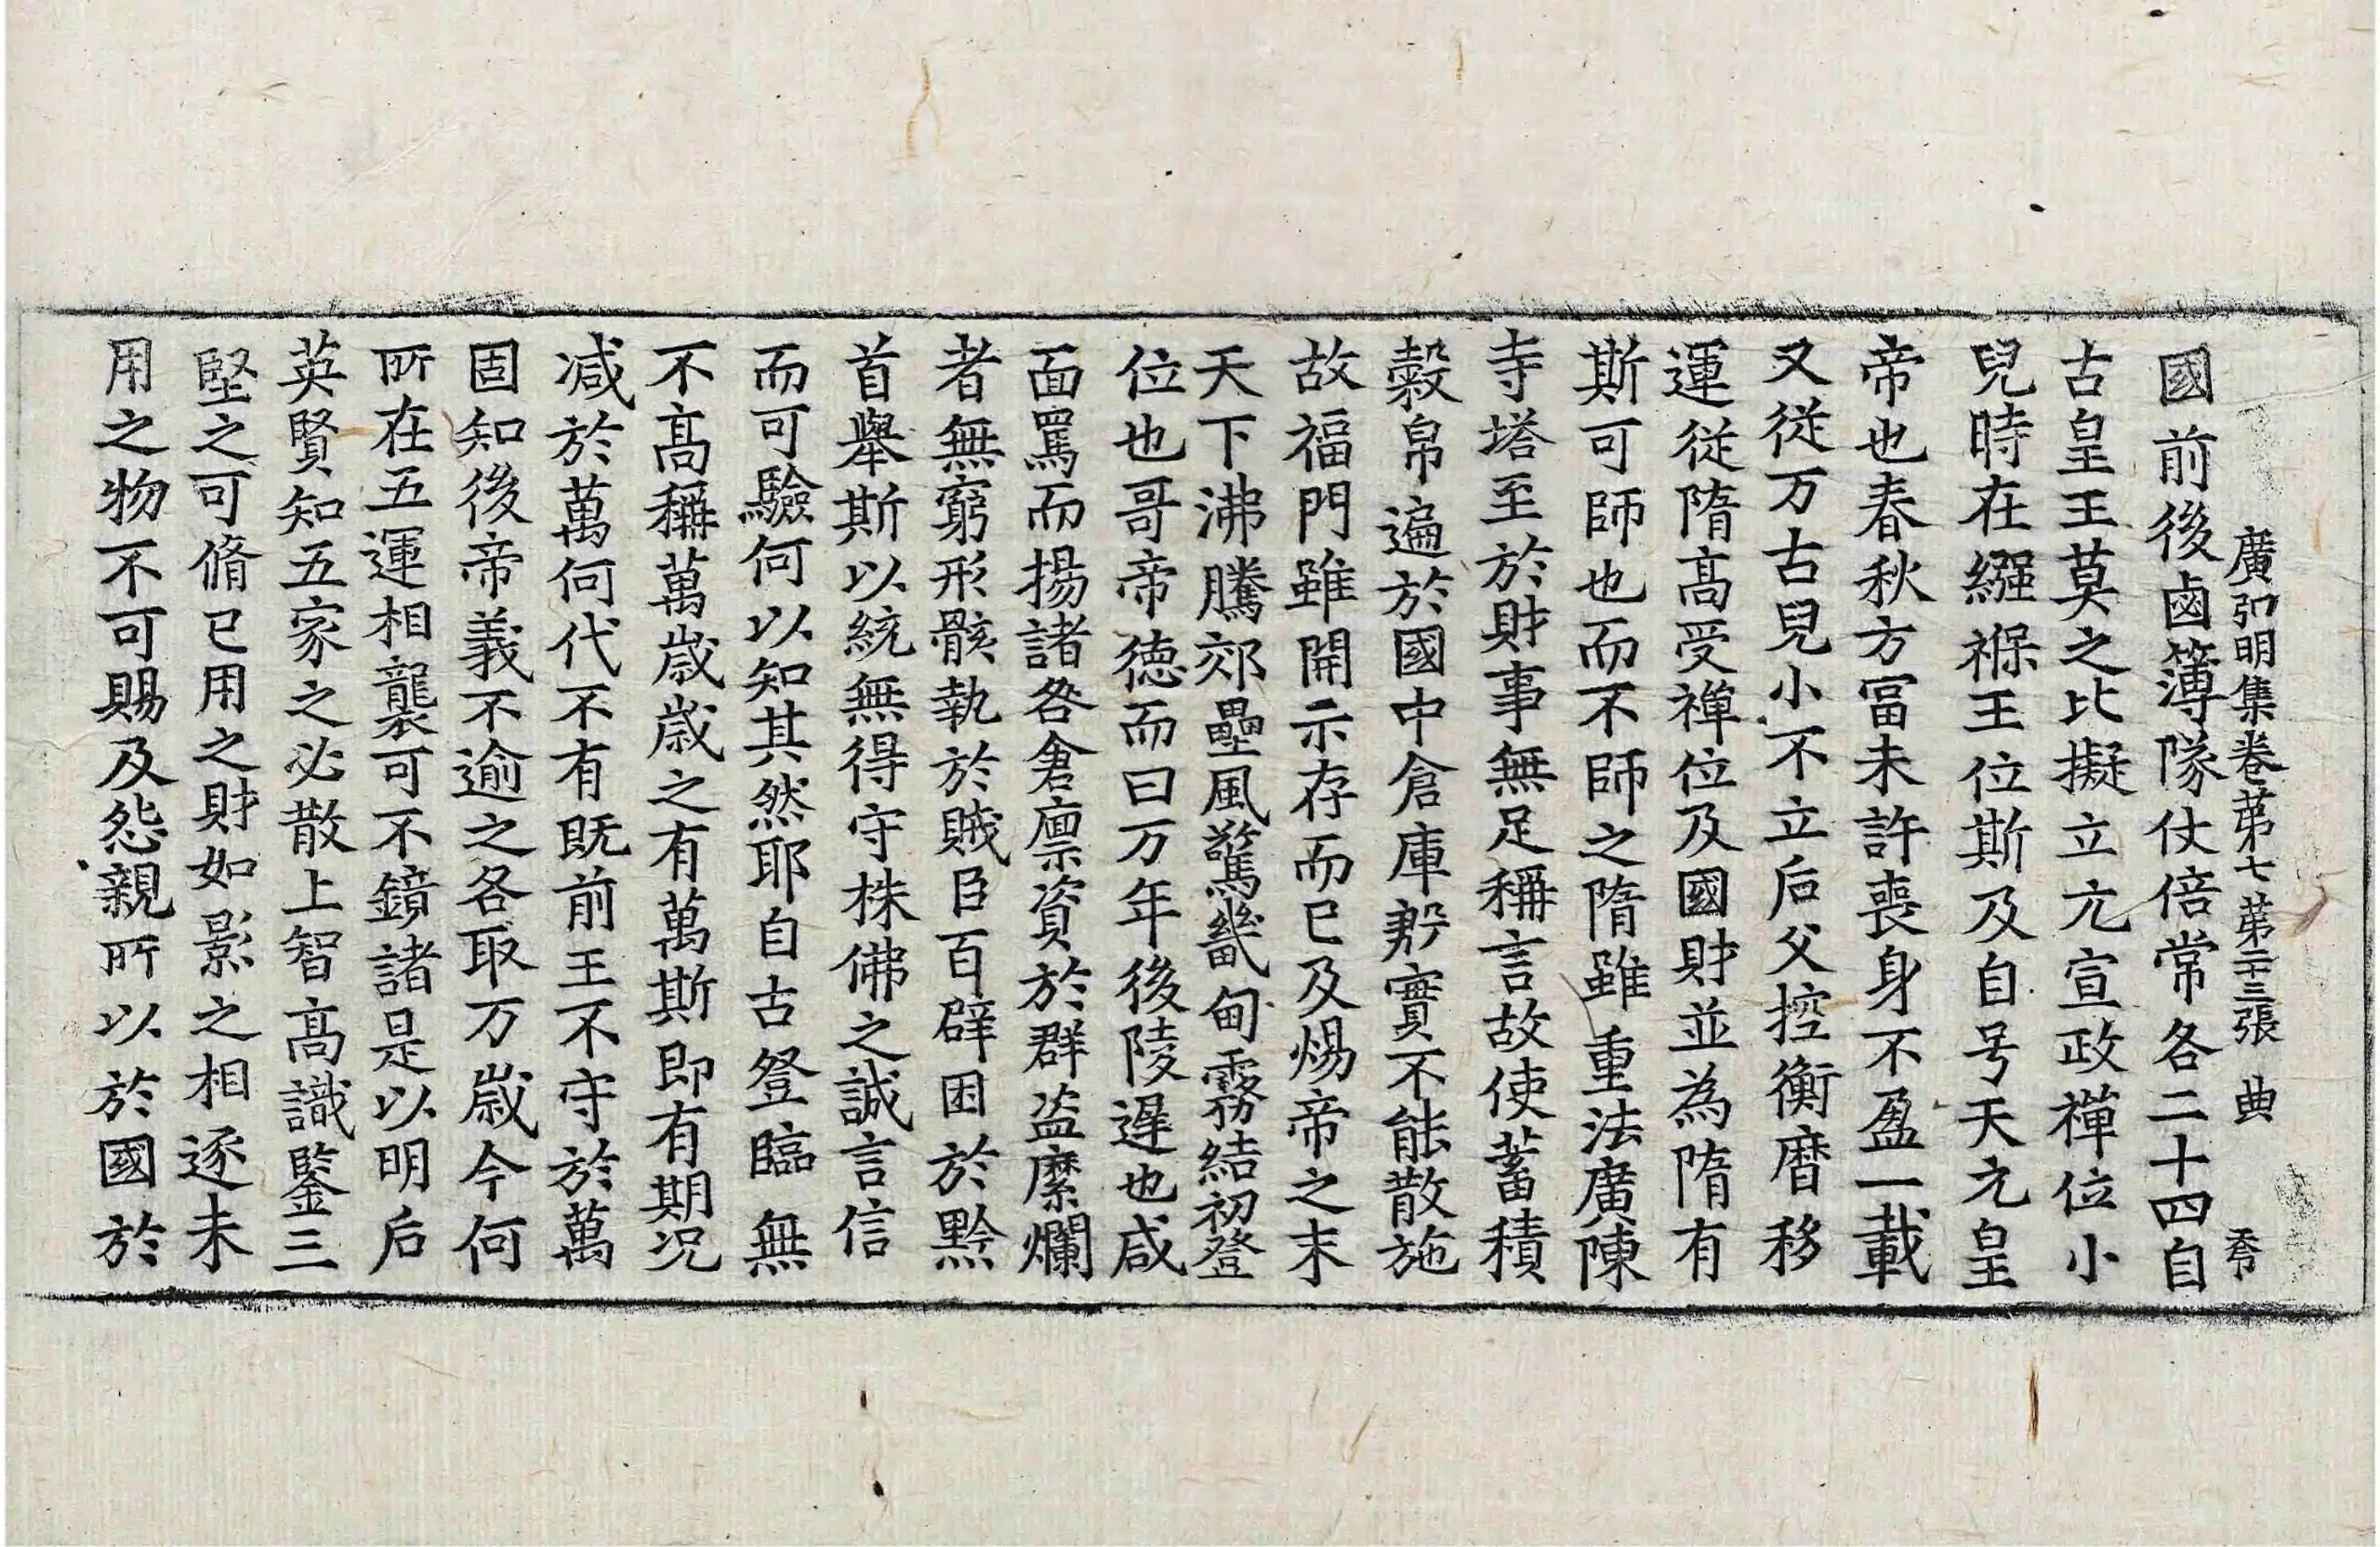 廣弘明集卷苐七苐二十三張 典 秀
國前後鹵簿隊仗倍常各二十四自
古皇王莫之比擬立亢宣政禪位小
兒時在繦褓王位斯及自号天元皇
帝也春秋方冨未許喪身不盈一載
又從万古兒小不立后父控衡曆移
運從隋髙受禪位及國財並為隋有
斯可師也而不師之隋雖重法廣陳
寺塔至於財事無足稱言故使蓄積
糓帛遍於國中倉庫䏍實不能散施
故福門雖開示存而已及煬帝之末
天下沸騰郊壘風驚畿甸霧結初登
位也哥帝徳而曰万年後陵遲也咸
面罵而揚諸咎倉廩資於群盗縻爛
者無窮形骸執於賊臣百辟困於黔
首舉斯以統無得守株佛之誠言信
而可驗何以知其然耶自古登臨無
不髙稱萬歳歳之有萬斯即有期况
減於萬何代不有既前王不守於萬
固知後帝義不逾之各取万歳今何
所在五運相襲可不鏡諸是以明后
英賢知五家之必散上智髙識鑒三
堅之可脩已用之財如影之相逐未
用之物不可賜及怨親所以於國於